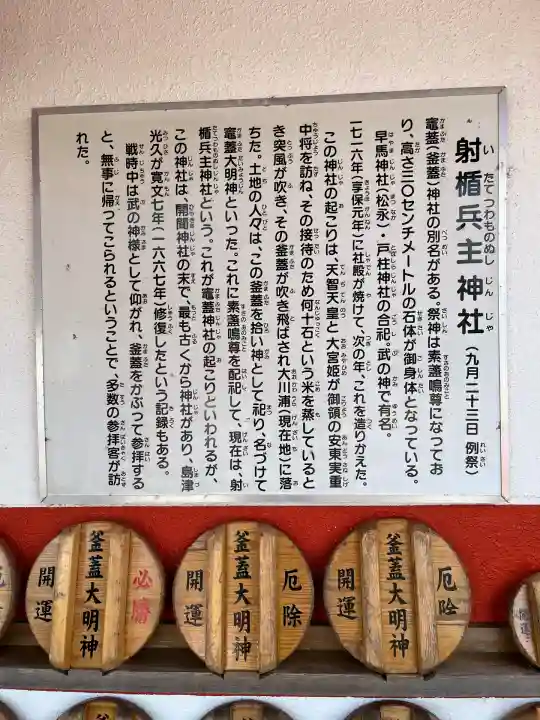 射楯兵主神社（九月二十三日 例祭）
竈蓋（釜蓋）神社の別名がある。祭神は素盞嗚尊になってお
り、高さ三〇センチメートルの石体が御身体となっている。
早馬神社（松永）・戸柱神社の合祀。武の神で有名。
一七一六年（享保元年）に社殿が焼けて、次の年、これを造りかえた。
この神社の起こりは、天智天皇と大宮姫が御領の安東実重
中将を訪ね、その接待のため何十石という米を蒸しているとき
き突風が吹き、その釜蓋が吹き飛ばされ大川浦（現在地）に落
ちた。土地の人々は、この釜蓋を拾い神として祀り、名づけて
竈蓋大明神といった。これに素盞嗚尊を配祀して、現在は、射
楯兵主神社という。これが竈蓋神社の起こりといわれるが、
この神社は、開聞神社の末で、最も古くから神社があり、島津
光久が寛文七年（一六六七年）修復したという記録もある。
戦時中は武の神様として仰がれ、釜蓋をかぶって参拝する
と、無事に帰ってこられるということで、多数の参拝客が訪
れた。
必勝
釜蓋大明神
開運
厄除
釜蓋大明神
開運
厄除
釜蓋大明神
開運